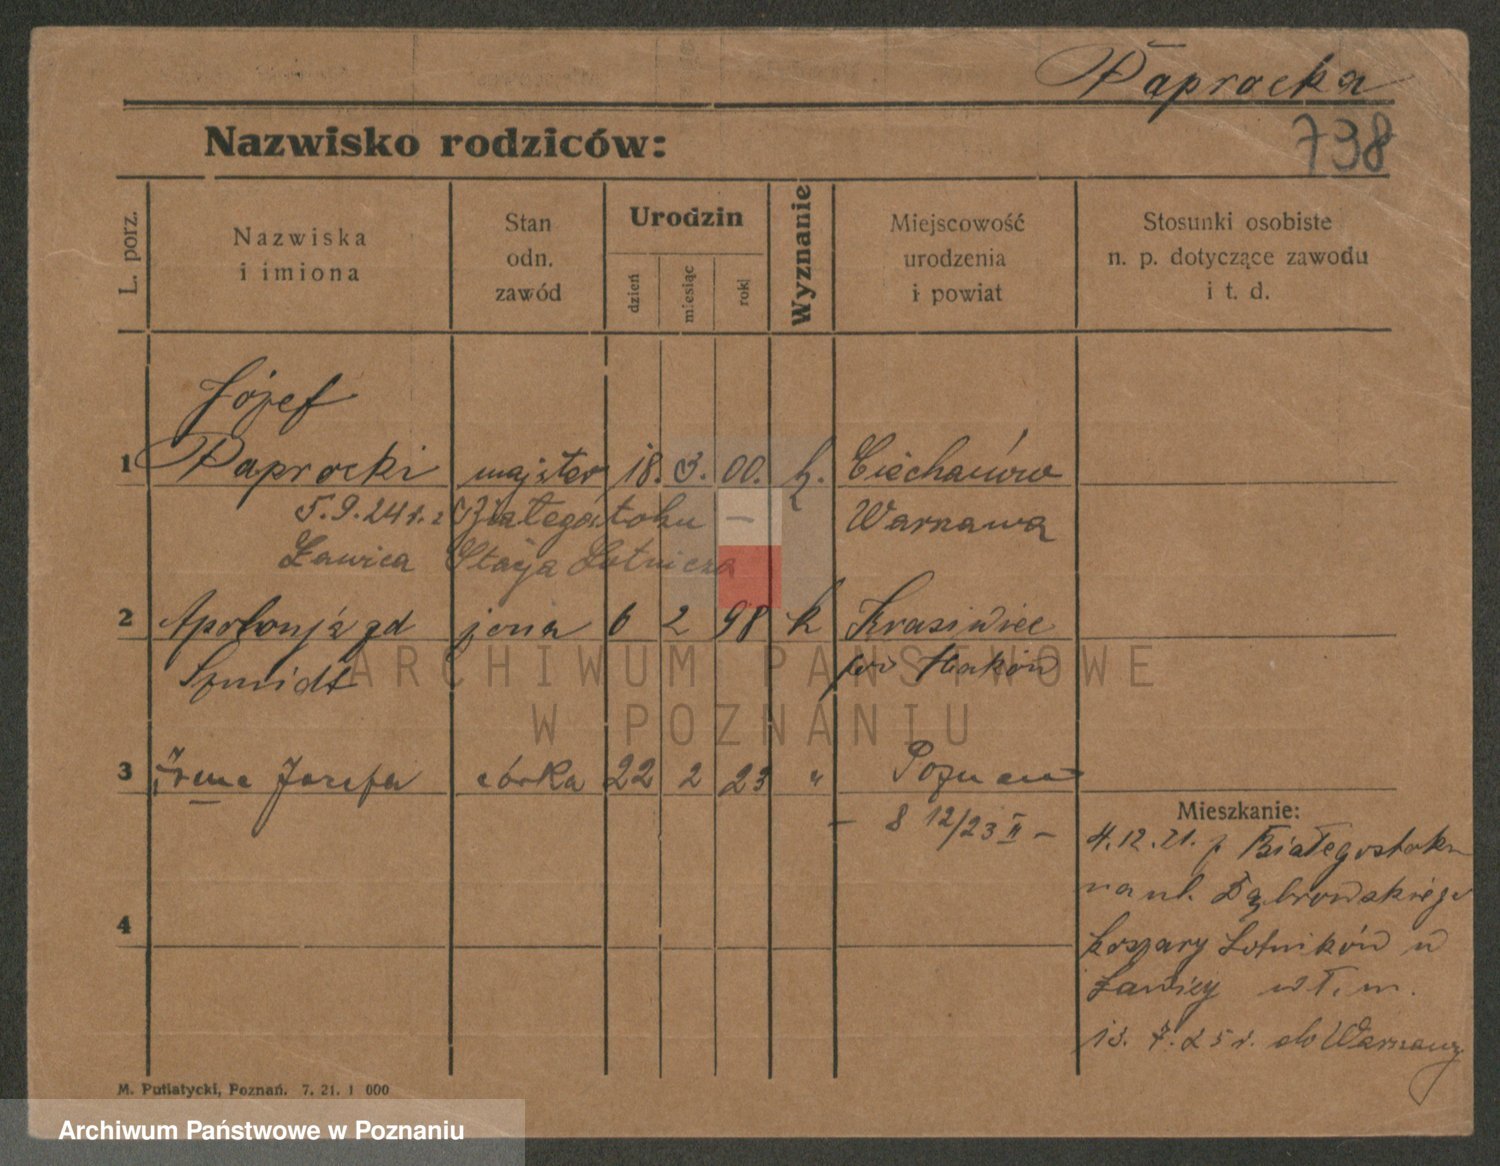 Paprocka
Nazwisko rodziców:
738
L. porz.
Nazwiska
i imiona
Stan
odn.
zawód
Urodzin
dzień
miesiąc
rok
Wyznanie
Miejscowość
urodzenia
i powiat
Stosunki osobiste
n. p. dotyczące zawodu
i t. d.
Józef
1 Paprocki majster 18. 3. 00. k. Ciechanów
5.9.24 r. z Białegostoku — Warszawa
Ławica Stacja Lotnicza
2 Apolonja zd żona 6 2 98 k Krasiniec
Szmidt pow Maków
3 Irena Józefa córka 22 2 23 " Poznań
— 8 12/23 II —
Mieszkanie:
4.12.21. z Białegostoku
na ul. Dąbrowskiego
4
koszary Lotników w
Ławicy wł. m.
13. 7. 25 r. do Warszawy
M. Putiatycki, Poznań. 7. 21. 1 000
ARCHIWUM PAŃSTWOWE
W POZNANIU
Archiwum Państwowe w Poznaniu